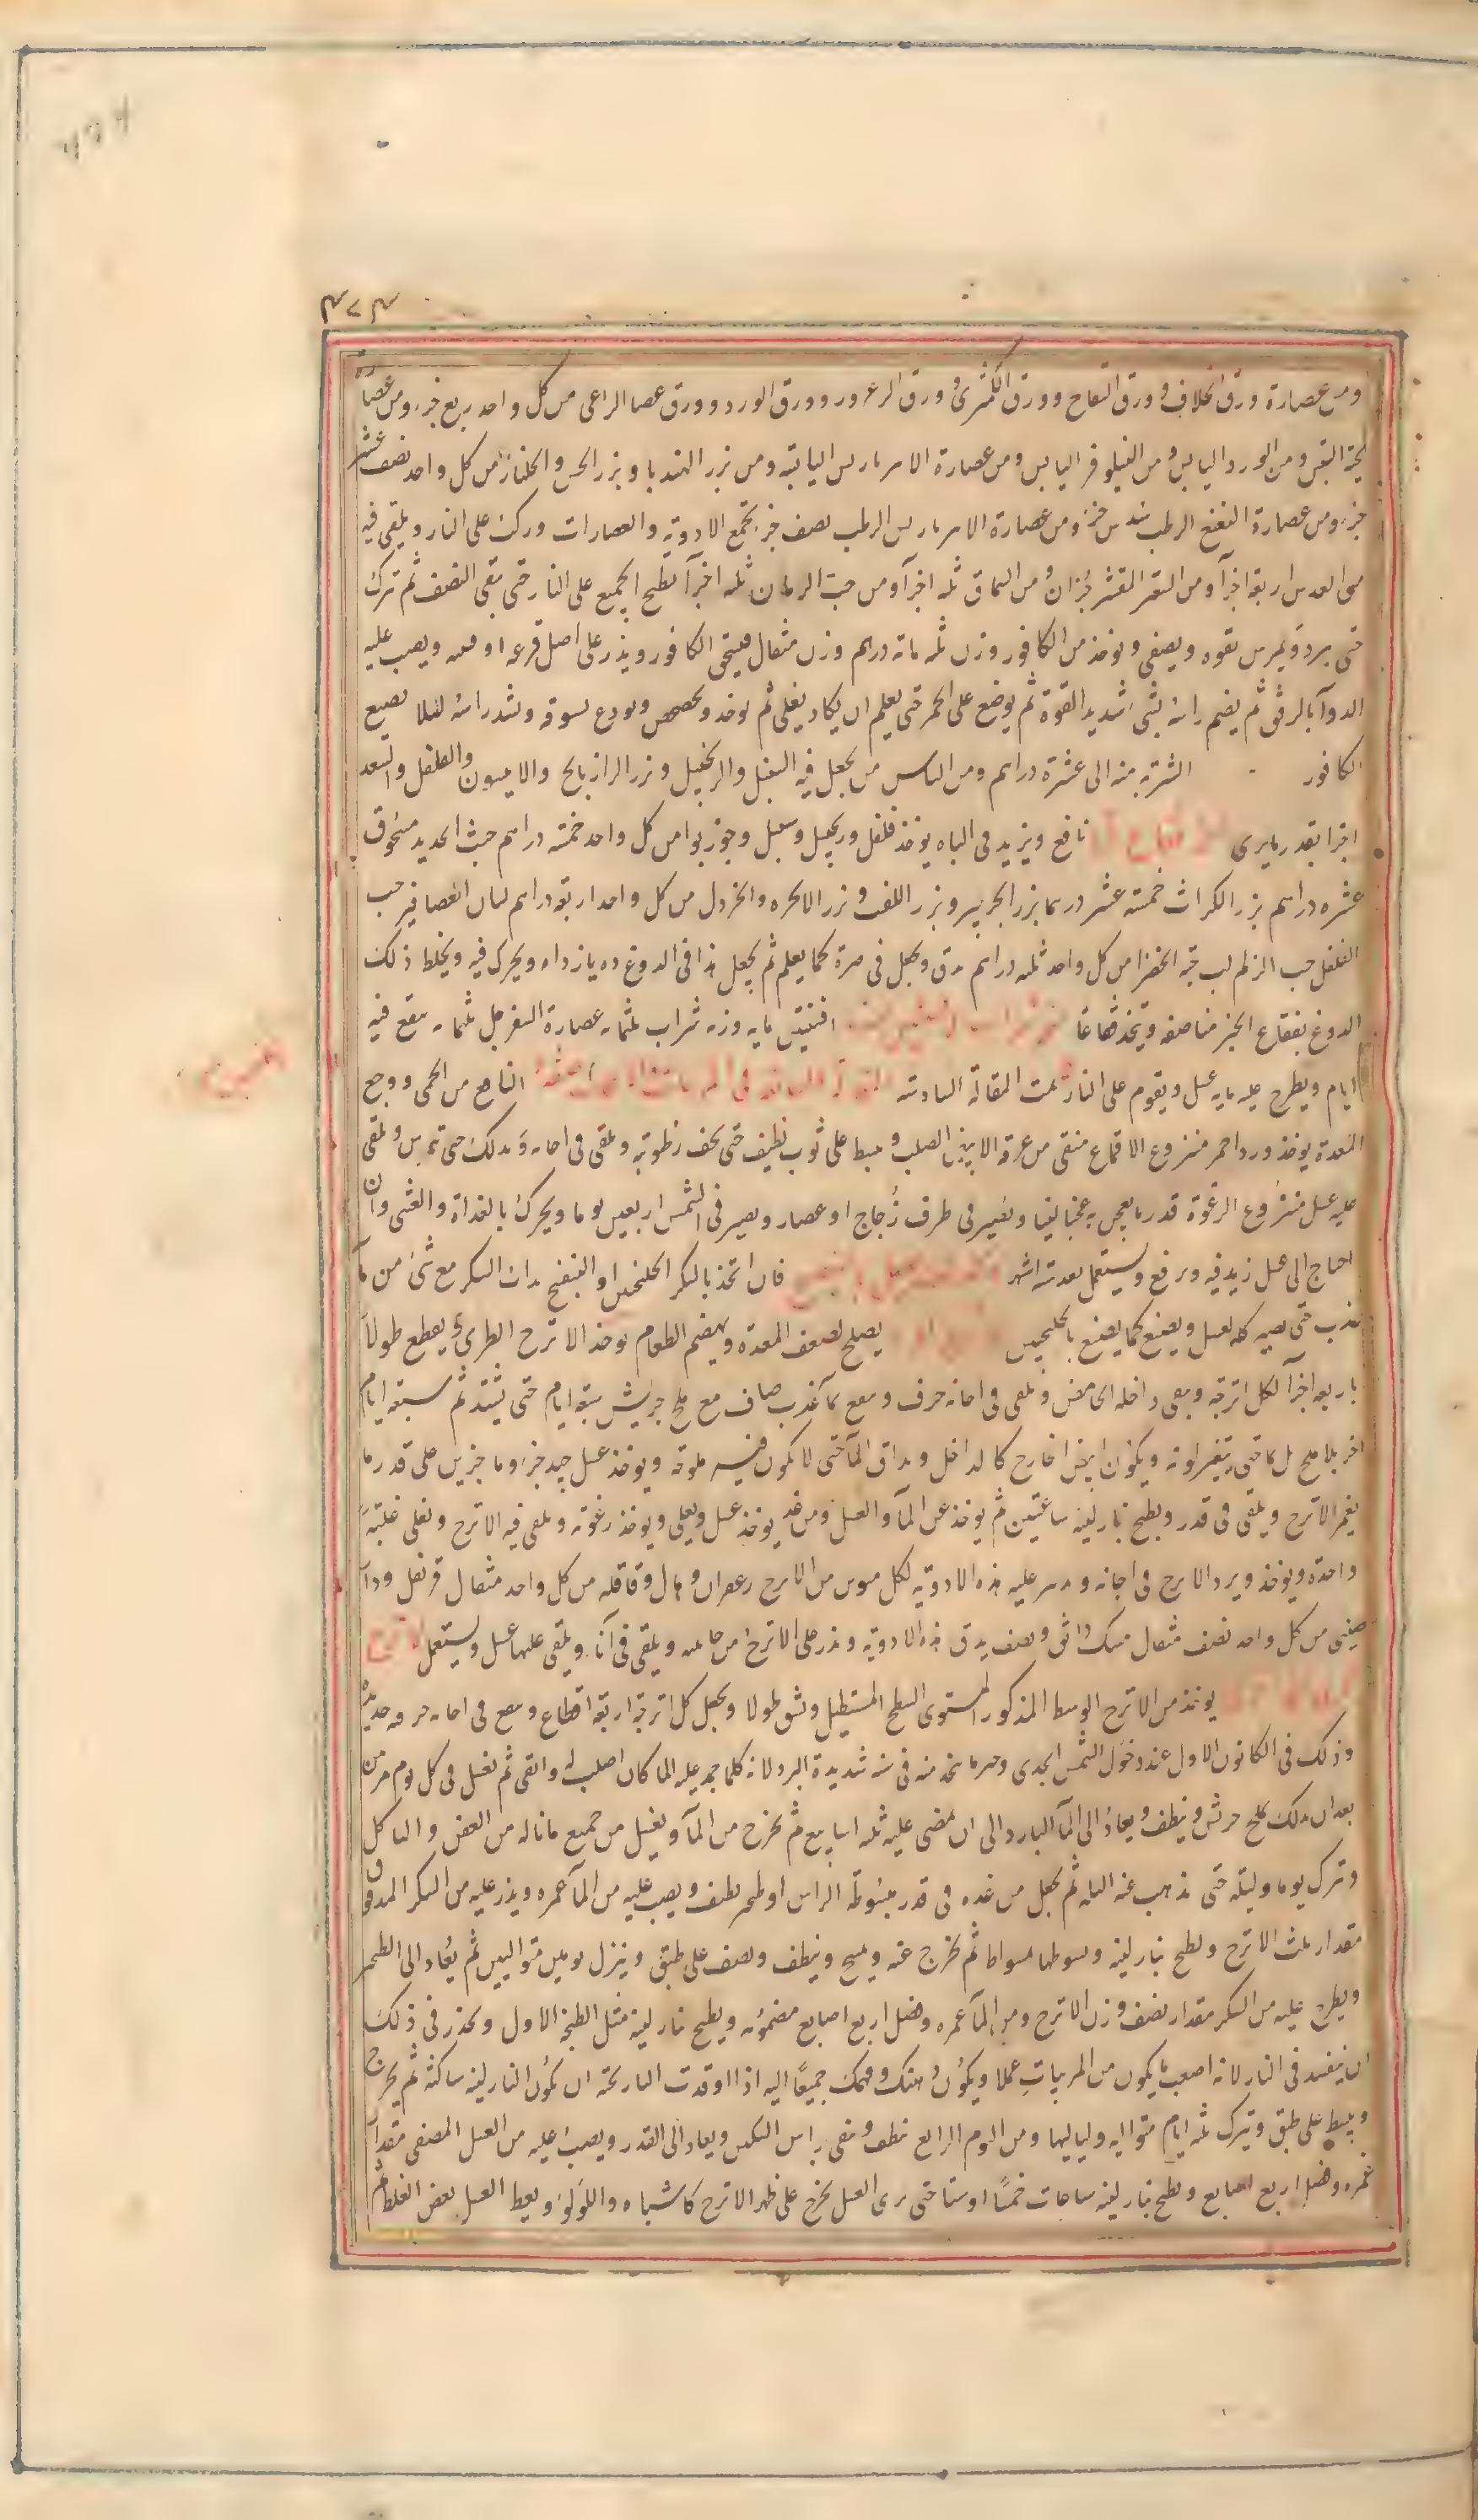 ٣٧٣
ومن عصارة ورق الخلاف وورق التفاح وورق الكمثرى وورق الزعرور وورق الورد وورق عصا الراعى من كل واحد ربع جزء ومن عصارة
لحية التيس ومن الورد اليابس ومن النيلوفر اليابس ومن عصارة الامبرباريس اليابسة ومن بزر الهندبا وبزر الخس والجلنار من كل واحد نصف عشر
جزء ومن عصارة النعنع الرطب سدس جزء ومن عصارة الامبرباريس الرطب نصف جزء تجمع الادوية والعصارات وتركب على النار ويلقى فيه
من العدس اربعة اجزآ ومن الشعير المقشر جزءان ومن السماق ثلثه اجزآ ومن حب الرمان ثلثه اجزآ يطبخ الجميع على النار حتى يبقى النصف ثم يترك
حتى يبرد ويمرس بقوه ويصفى ويوخذ من الكافور وزن لكل ثلثه مائة درهم وزن مثقال فيسحق الكافور ويذر على اصل قرعه او ويصب عليه
الدوآ بالرفق ثم يضم راسه بشىء شديد القوة ثم يوضع على الجمر حتى يعلم ان يكاد يغلى ثم يوخذ ويخضخض ويودع بستوقه ويشد راسه لئلا يضيع
الكافور الشربة منه الى عشرة دراهم ومن الناس من يجعل فيه السنبل والزنجبيل وبزر الرازيانج والانيسون والفلفل والسعد
اجزا بقدر ما يرى نافع ويزيد فى الباه يوخذ فلفل وزنجبيل وسنبل وجوزبوا من كل واحد خمسة دراهم خبث الحديد مسحوق
عشره دراهم بزر الكراث خمسة عشر درهما بزر الجرجير وبزر اللفت وبزر الانجره والخردل من كل واحد اربعة دراهم لسان العصافير حب
الفلفل حب الزلم لب حبة الخضرا من كل واحد ثلثه دراهم يدق ويجعل فى صرة كما يعلم ثم يجعل هذا فى الدوغ ده يازداه ويحرك فيه ويخلط ذلك
الدوغ بفقاع الخبز مناصفه ويتخذ فقاعًا افسنتين مايه وزنه شراب ثلثمايه عصارة السفرجل ثلثمايه ينقع فيه
ايام ويطرح عليه مايه عسل ويقوم على النار تمت المقالة السادسة المقالة السابعة فى المربيات النافع من الحمى ووجع
المعدة يوخذ ورد احمر منزوع الاقماع منقى من عرقه الابيض الصلب ويبسط على ثوب نظيف حتى يجف رطوبته ويلقى فى اجانه ويدلك حتى يتمرس ويلقى
عليه عسل منزوع الرغوة قدر ما يعجن به عجنا لينا ويصير فى ظرف زجاج او غضار ويصير فى الشمس اربعين يوما ويحرك بالغداة والعشى وان
احتاج الى عسل زيد فيه ويرفع ويستعمل بعد ستة اشهر فان اتخذ بالسكر الجلنجبين او البنفسج يذاب السكر مع شىء من مآ
عذب حتى يصير كله كعسل ويصنع كما يصنع بالجلنجبين يصلح لضعف المعدة ويهضم الطعام يوخذ الاترج الطرى ويقطع طولاً
باربعه اجزآ لكل اترجة وينقى داخله الحامض ويلقى فى اجانه خزف وينقع بمآ عذب صاف مع ملح جريش ستة ايام حتى يشتد ثم سبعة ايام
اخر بلا ملح بل بما حتى يتغير لونه ويكون ابيض الخارج كالداخل ويذاق المآ حتى لا يكون فيه ملوحة ويوخذ عسل جيد جزء وما جزين على قدر ما
يغمر الاترج ويلقى فى قدر ويطبخ بنار لينه ساعتين ثم يوخذ عن المآ والعسل ومن غد يوخذ عسل ويغلى ويوخذ رغوته ويلقى فيه الاترج ويغلى غلية
واحدة ويوخذ ويبرد الاترج فى اجانه ويذر عليه هذه الادوية لكل من الاترج زعفران وهال وقاقله من كل واحد مثقال قرنفل ودار
صينى من كل واحد نصف مثقال مسك دانق ونصف يدق هذه الادوية ويذر على الاترج من جانبيه ويلقى فى انآ ويلقى عليها عسل ويستعمل
يوخذ من الاترج الوسط المذكور المستوى السطح المستطيل ويشق طولا ويجعل كل اترجة اربعة اقطاع وينقع فى اجانه خزف جديده
وذلك فى الكانون الاول عند دخول الشمس الجدى وخير ما يتخذ منه فى سنه شديدة البرد لانه كلما جمد عليه الما كان اصلب له وانقى ثم يغسل فى كل يوم مرتين
بعد ان يدلك بملح جريش وينظف ويعاد الى المآ البارد الى ان يمضى عليه ثلثه اسابيع ثم يخرج من المآ ويغسل من جميع ما ناله من العفن والتاكل
ويترك يوما وليلة حتى يذهب عنه البله ثم يجعل من غده فى قدر مبسوطة الراس او طنجير نظيف ويصب عليه من المآ غمره ويذر عليه من السكر المدقوق
مقدار ثلث الاترج ويطبخ بنار لينه ويسوطها مسواطا ثم يخرج عنه ويمسح وينظف ويصف على طبق وينزل يومين متواليين ثم يعاد الى الطنجير
ويطرح عليه من السكر مقدار نصف وزن الاترج ومن المآ غمره وفضل اربع اصابع مضمومه ويطبخ بنار لينه مثل الطبخة الاول ويحذر فى ذلك
ان يفسد فى النار لانه اصعب ما يكون من المربيات عملا ويكون همتك وفهمك جميعًا اليه اذا اوقدت النار تحته ان تكون النار لينه ساكنة ثم يخرج
ويبسط على طبق ويترك ثلثه ايام متواليه ولياليها ومن اليوم الرابع ينظف وينقى براس السكين ويعاد الى القدر ويصب عليه من العسل المصفى مقدار
غمره وفضل اربع اصابع ويطبخ بنار لينه ساعات خمسًا او ستا حتى يرى العسل يخرج على ظهر الاترج كاشباه واللؤلؤ ويعطى العسل بعض الغلظ ثم